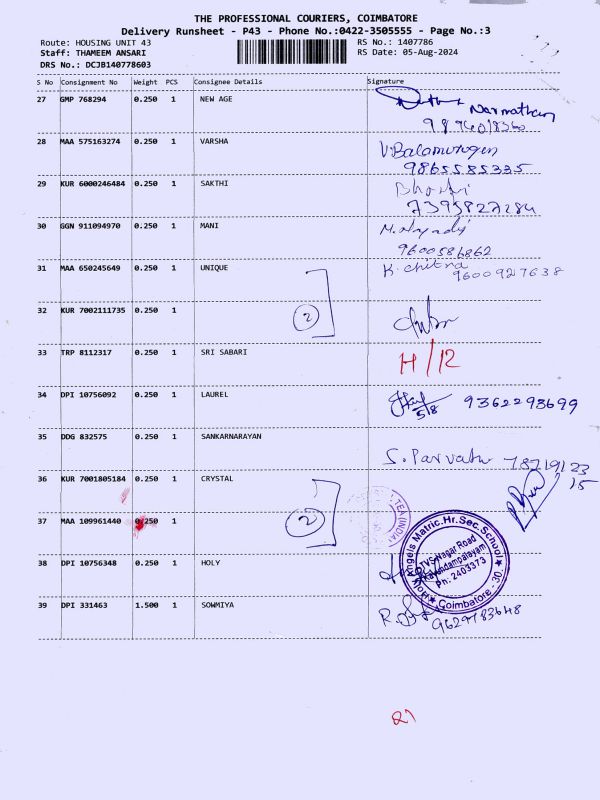 THE PROFESSIONAL COURIERS, COIMBATORE
Delivery Runsheet - P43 - Phone No.:0422-3505555 - Page No.:3
Route: HOUSING UNIT 43 RS No.: 1407786
Staff: THAMEEM ANSARI RS Date: 05-Aug-2024
DRS No.: DCJB140778603
S No Consignment No Weight PCS Consignee Details Signature
27 GMP 768294 0.250 1 NEW AGE
28 MAA 575163274 0.250 1 VARSHA V.Balamurugan
9865585335
29 KUR 6000246484 0.250 1 SAKTHI
7395827284
30 GGN 911094970 0.250 1 MANI
9600586862
31 MAA 650245649 0.250 1 UNIQUE K. chitra 9600927638
32 KUR 7002111735 0.250 1 2
33 TRP 8112317 0.250 1 SRI SABARI H/12
34 DPI 10756092 0.250 1 LAUREL 5/8 9362293699
35 DDG 832575 1 SANKARNARAYAN
S. Parvathi 78719123
15
36 KUR 7001805184 0.250 1 CRYSTAL
37 MAA 109961440 0.250 1 2
38 DPI 10756348 0.250 1 HOLY
Holy Angels Matric.Hr.Sec.School
TVS Nagar Road
Kavundampalayam
Pn: 2403373
Coimbatore - 30.
39 DPI 331463 1.500 1 SOWMIYA
9629783648